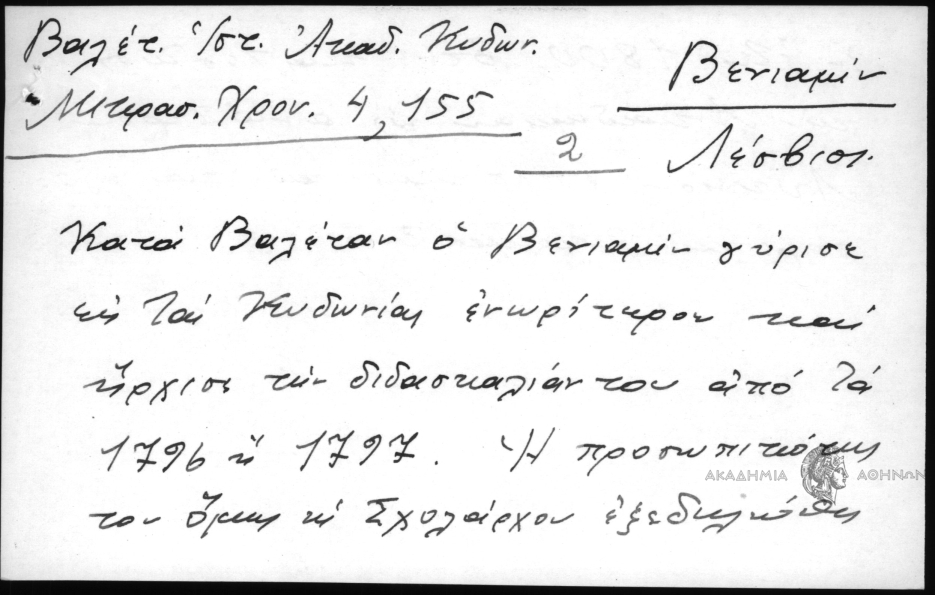 Βαλέτ. Ἱστ. Ἀκαδ. Κυδων.
Μιτρασ. Χρον. 4, 155
Βενιαμίν
2
Λέσβιος.
Κατά Βαλέταν ὁ Βενιαμίν γύρισε
εἰς τάς Κυδωνίας ἐνωρίτερον καί
ἤρχισε τήν διδασκαλίαν του ἀπό τά
1796 ἤ 1797. Ἡ προσωπικότης
ΑΚΑΔΗΜΙΑ ΑΘΗΝΩΝ
του ὅμως ὡς Σχολάρχου ἐξεδηλώθη